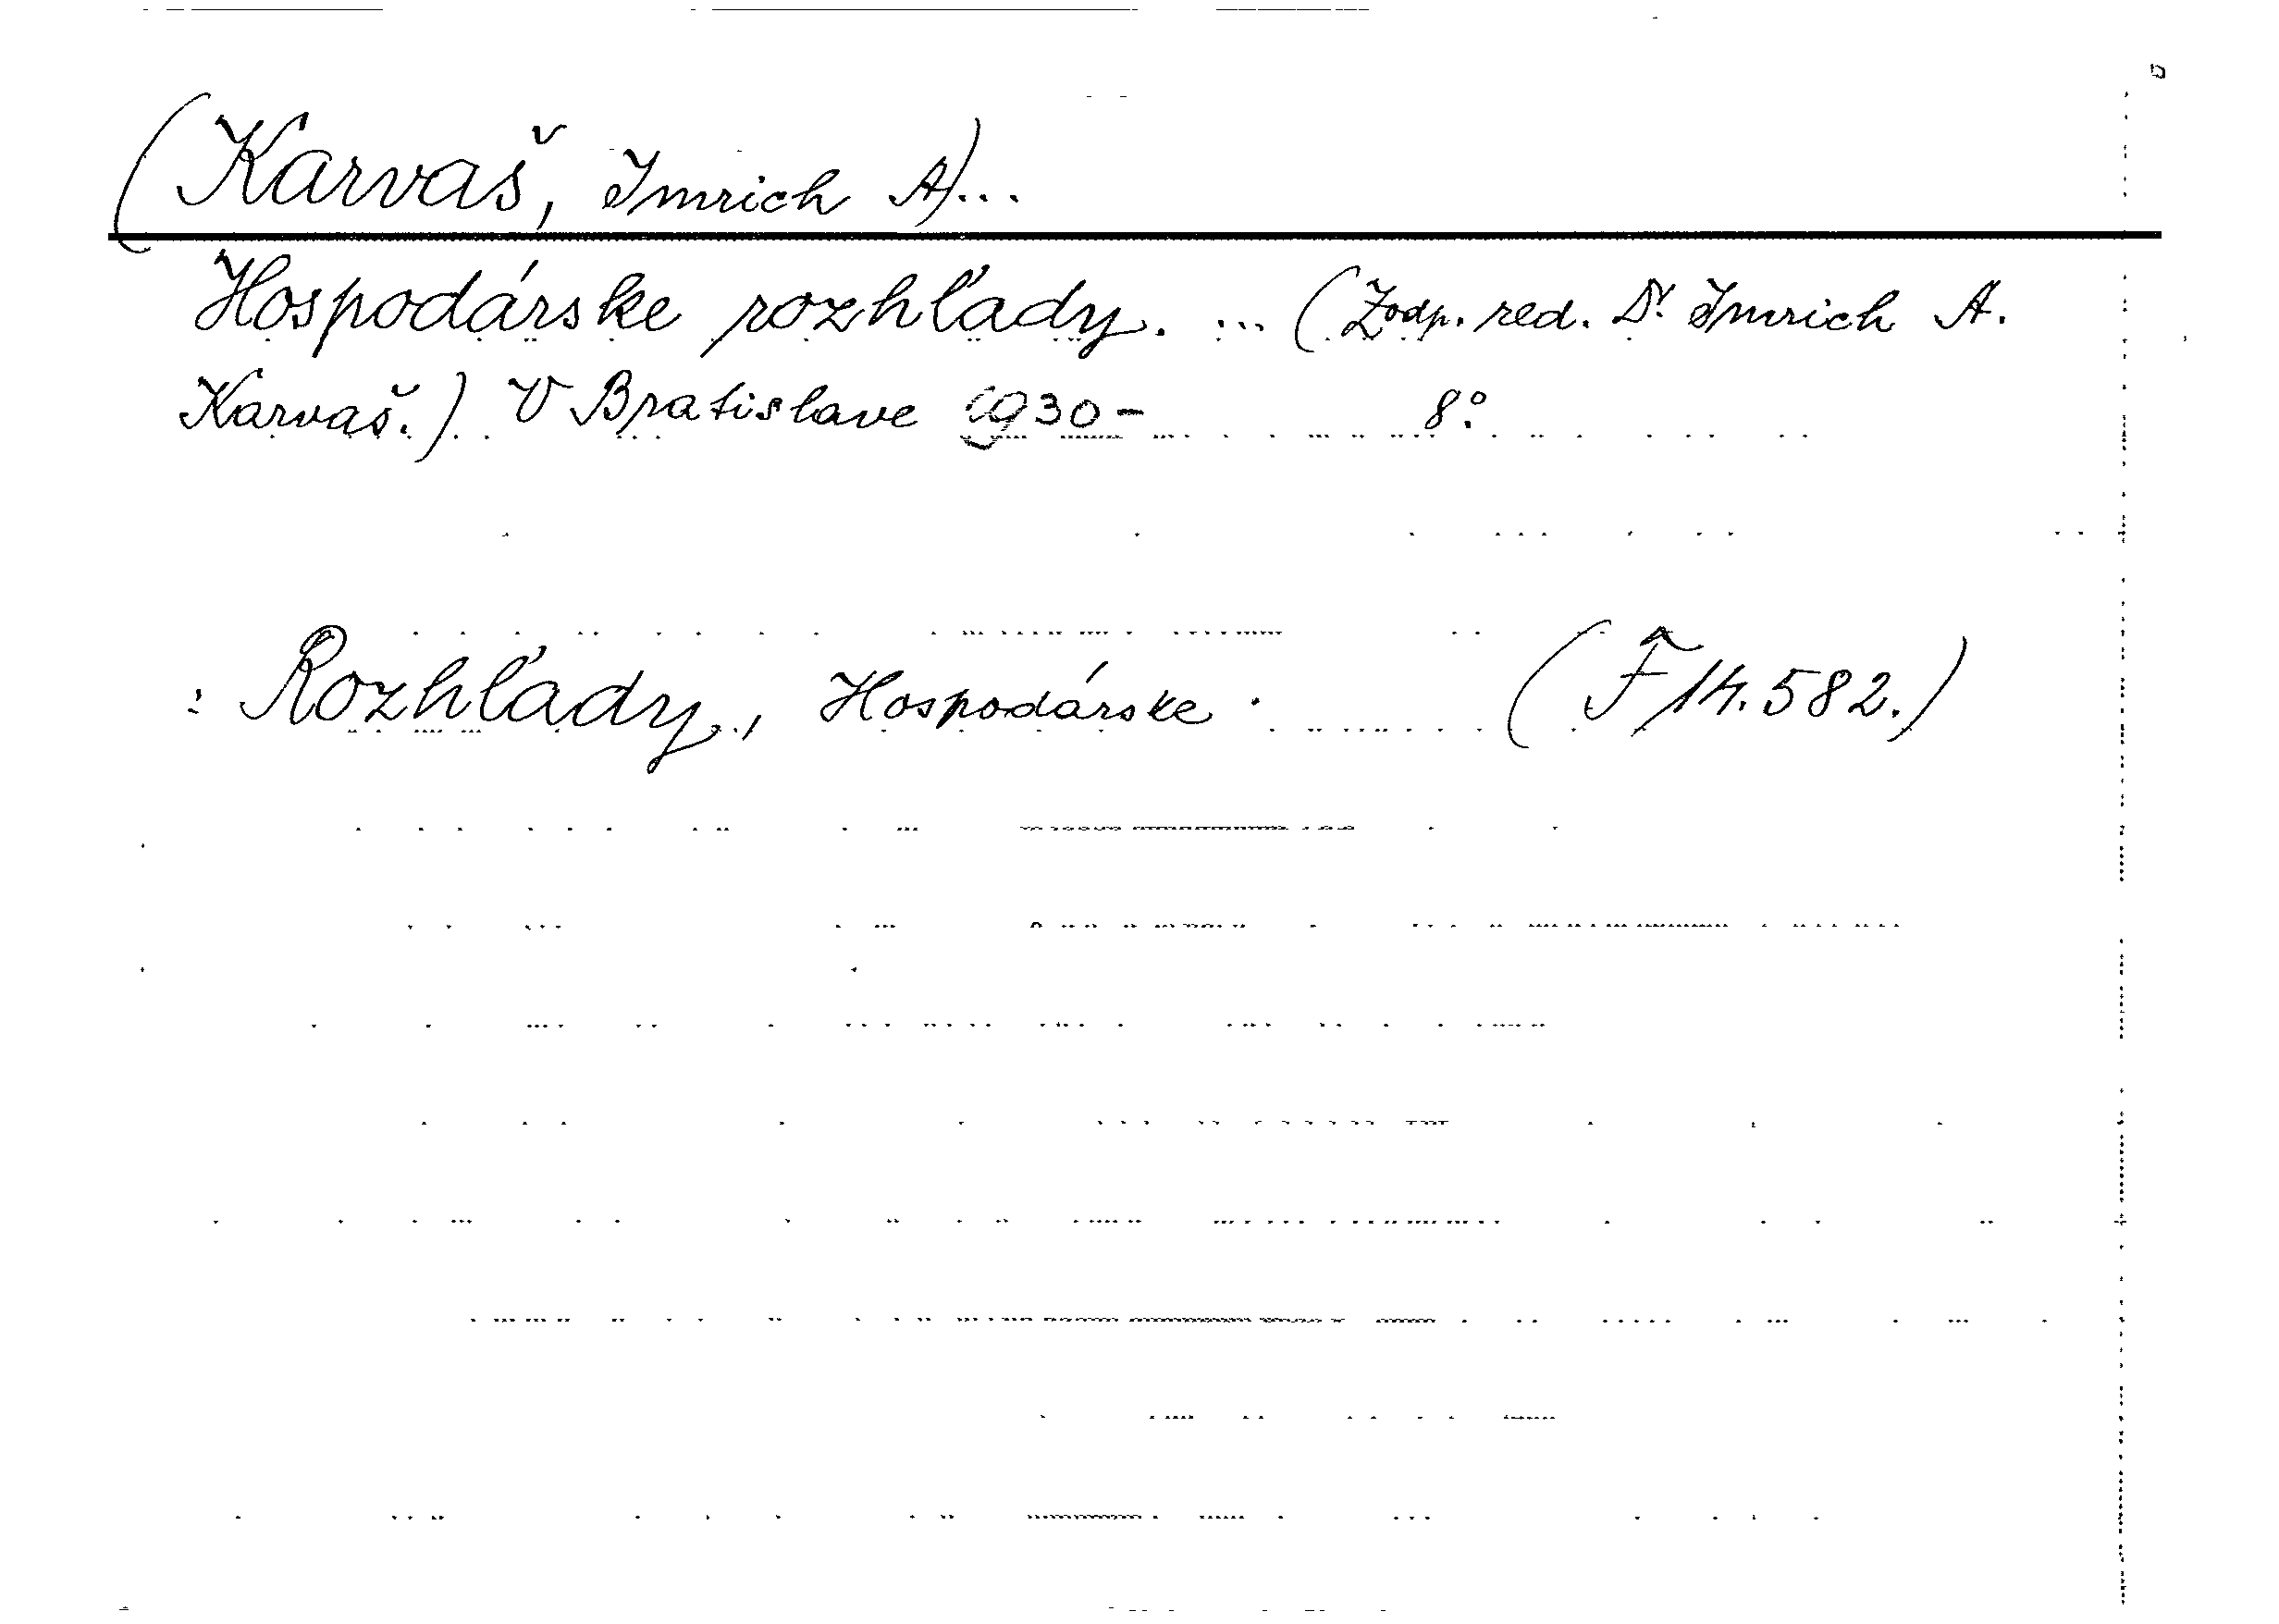 (Karvaš, Imrich A)...
Hospodárske rozhľady. ... (Zodp. red. Dr. Imrich A.
Karvaš.) V Bratislave 1930- 8°.
: Rozhľady, Hospodárske . (F 14.582.)